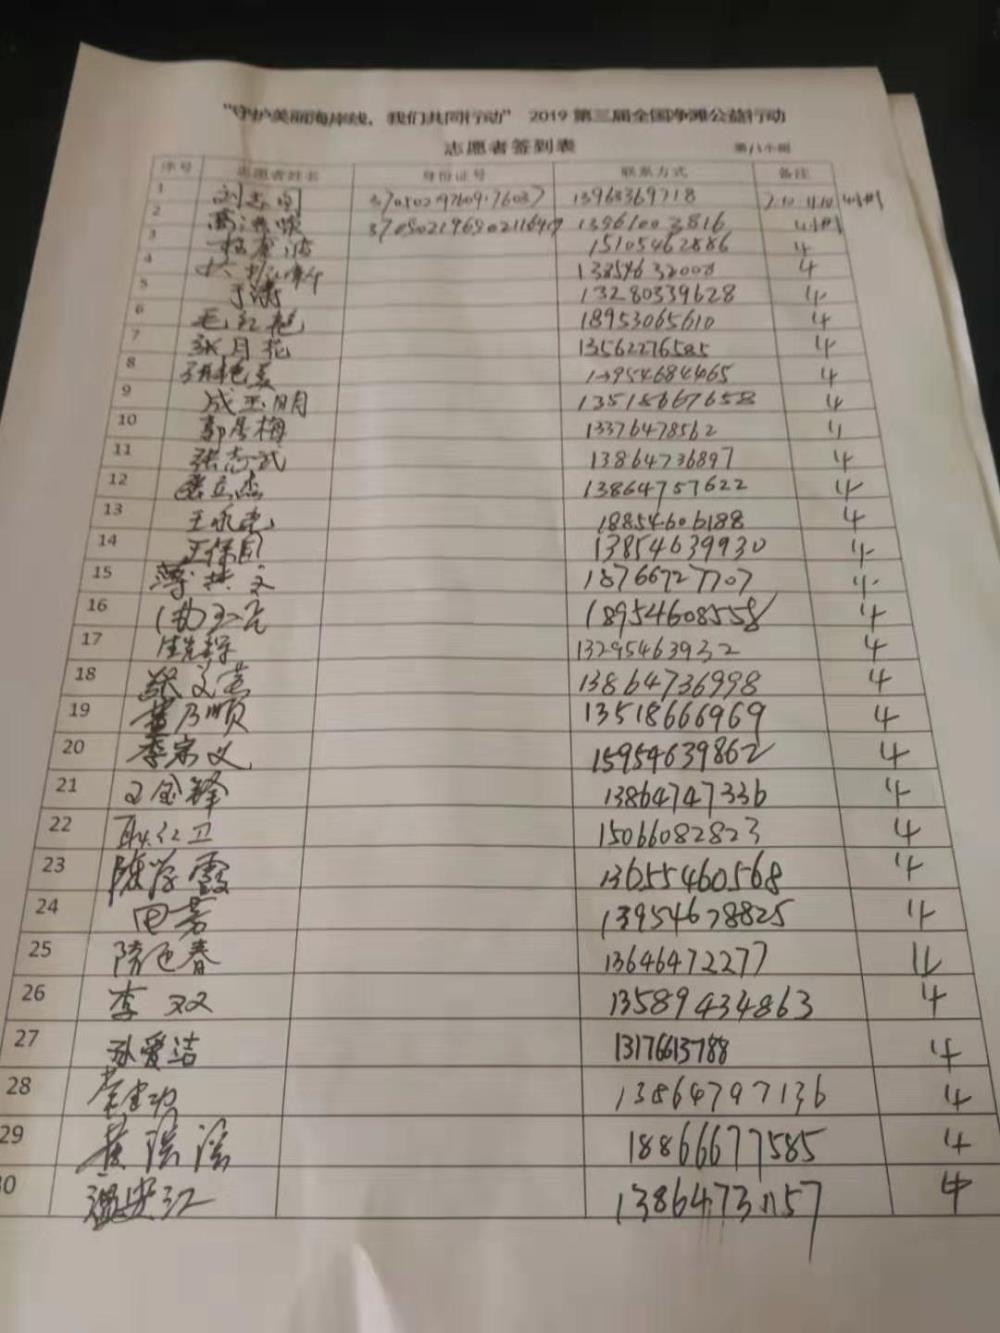 "守护美丽海岸线，我们共同行动" 2019 第三届全国净滩公益行动
志愿者签到表
序号 志愿者姓名 身份证号 联系方式 备注
1 13963369718
2 4小时
3 15105462886 4
4 4
5 于涛 13280339628 4
6 毛红艳 18953065610 4
7 张月花 13562276585 4
8 张艳美 13954684465 4
9 成玉明 13518667658 4
10 郭景梅 13376478562 4
11 张志武 13864736897 4
12 张立杰 13864757622 4
13 王永忠 18854606188 4
14 王保国 13854639930 4
15 18766727707 4
16 18954608558 4
17 13295463932 4
18 张文燕 13864736998 4
19 黄乃顺 13518666969 4
20 李宗义 15954639862 4
21 王金锋 13864747336 4
22 耿红卫 15066082823 4
23 陈学霞 13655460568 4
24 田芳 13954678825 4
25 隋迎春 13646472277 4
26 李双 13589434863 4
27 孙爱洁 13176613788 4
28 13864797136 4
29 18866677585 4
30 温安江 4